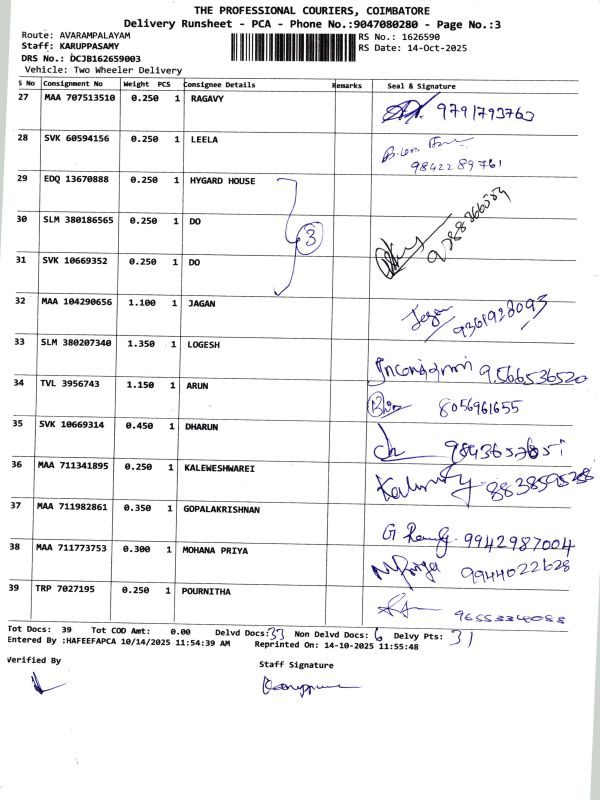 THE PROFESSIONAL COURIERS, COIMBATORE
Delivery Runsheet - PCA - Phone No.:9047080280 - Page No.:3
Route: AVARAMPALAYAM
Staff: KARUPPASAMY
DRS No.: DCJB162659003
Vehicle: Two Wheeler Delivery
RS No.: 1626590
RS Date: 14-Oct-2025
S No Consignment No Weight PCS Consignee Details Remarks Seal & Signature
27 MAA 707513510 0.250 1 RAGAVY 9791793763
28 SVK 60594156 0.250 1 LEELA
9842289761
29 EDQ 13670888 0.250 1 HYGARD HOUSE
30 SLM 380186565 0.250 1 DO 3
31 SVK 10669352 0.250 1 DO
32 MAA 104290656 1.100 1 JAGAN
Jagan 9361928093
33 SLM 380207340 1.350 1 LOGESH
9566536520
34 TVL 3956743 1.150 1 ARUN
8056961655
35 SVK 10669314 0.450 1 DHARUN
36 MAA 711341895 0.250 1 KALEWESHWAREI
37 MAA 711982861 0.350 1 GOPALAKRISHNAN
9942987004
38 MAA 711773753 0.300 1 MOHANA PRIYA
9944022628
39 TRP 7027195 0.250 1 POURNITHA
Tot Docs: 39 Tot COD Amt: 0.00 Delvd Docs:33 Non Delvd Docs: 6 Delvy Pts: 31
Entered By :HAFEEFAPCA 10/14/2025 11:54:39 AM Reprinted On: 14-10-2025 11:55:48
Verified By
Staff Signature